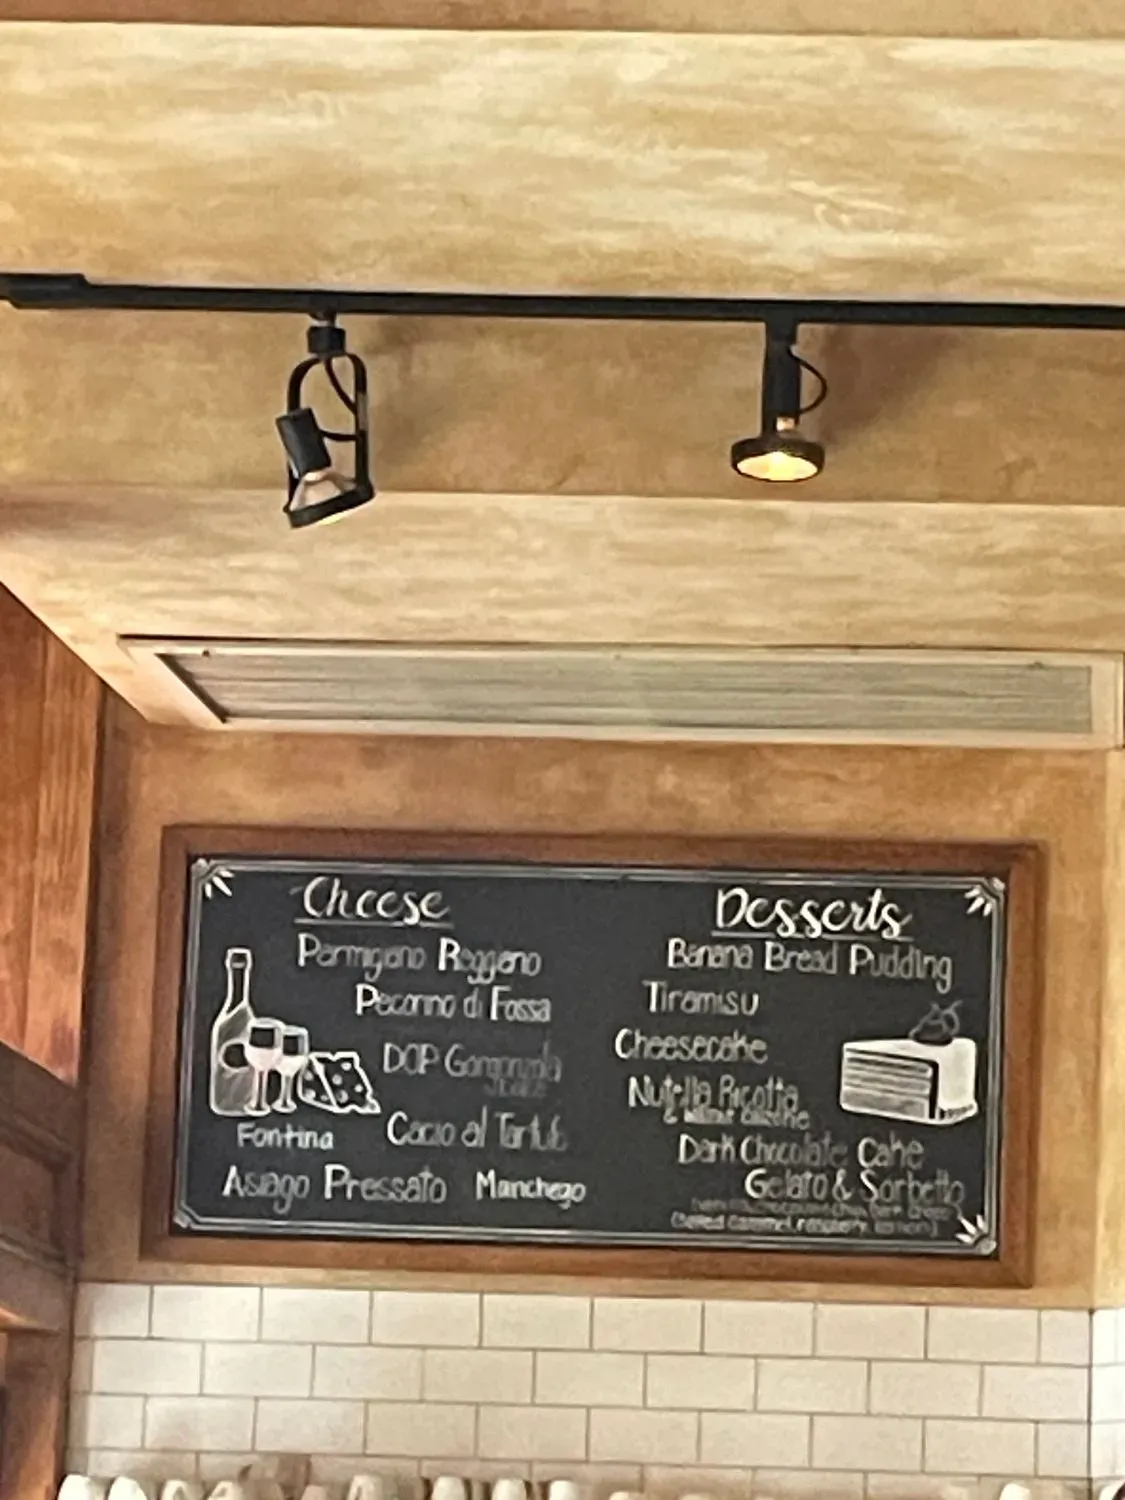 Cheese
Parmigano Reggano
Pecorino di Fossa
DOP Gorgonzola
Cacio al Tartufo
Fontina
Asiago Pressato
Manchego
Desserts
Banana Bread Pudding
Tiramisu
Cheesecake
Nutella Ricotta
Dark Chocolate Cake
Gelato & Sorbetto
salted caramel, raspberry, lemon